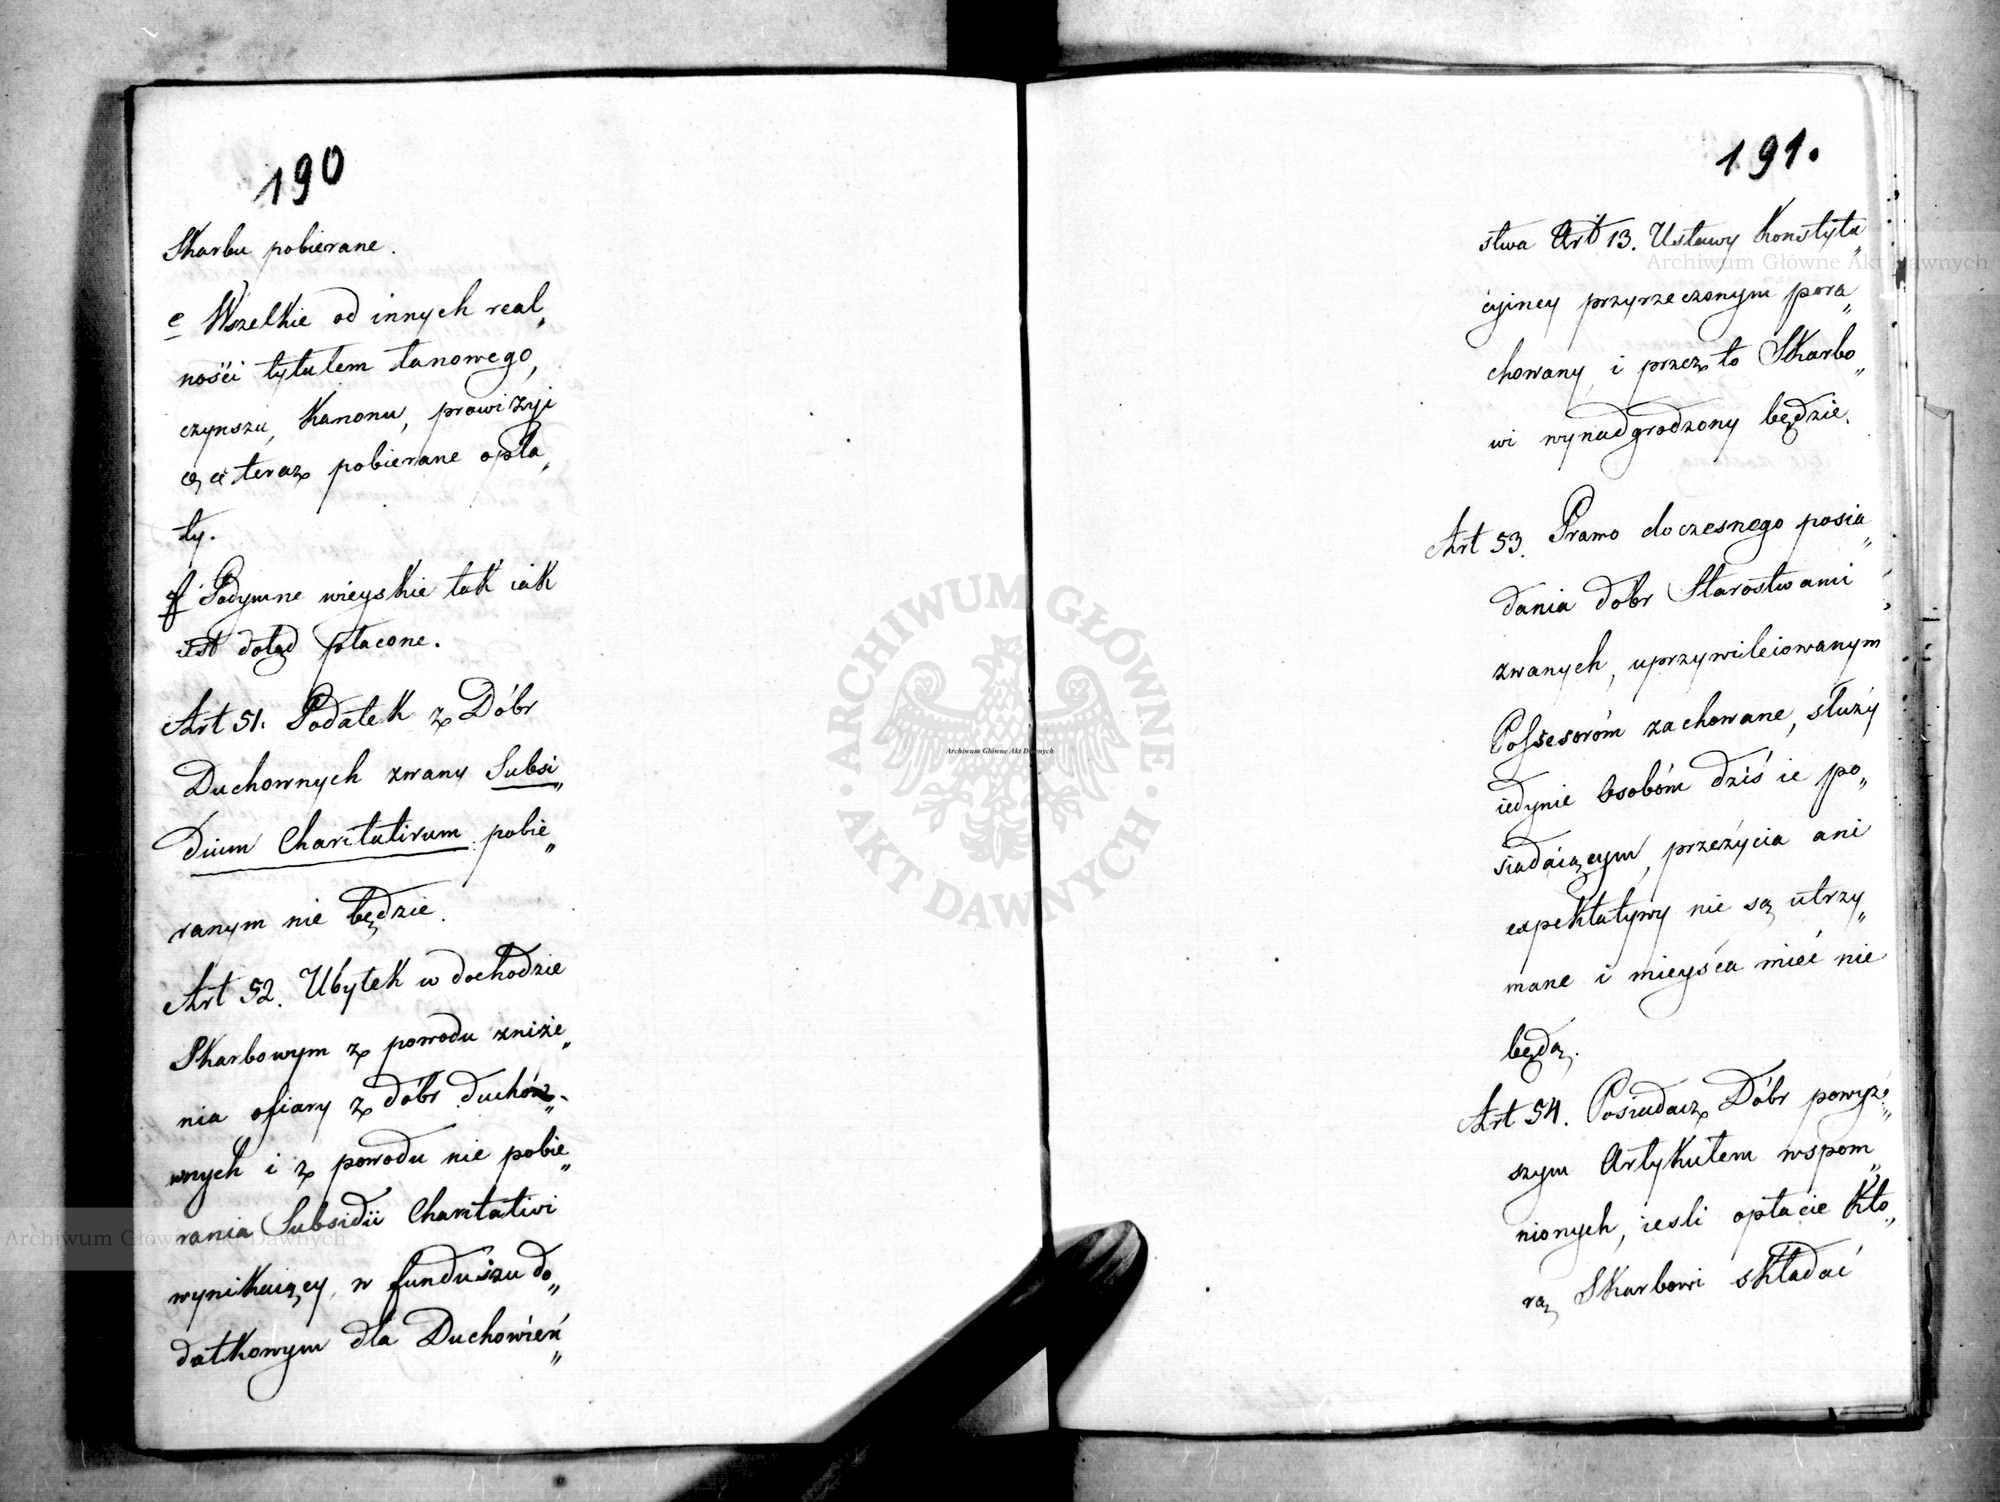 190
Skarbu pobierane.
e Wszelkie od innych real„
ności tytułem łanowego,
czynszu, Kanonu, prowizyi
etc teraz pobierane opła„
ty.
f Podymne wieyskie tak iak
iest dotąd płacone.
Art 51. Podatek z Dóbr
Duchownych zwany Subsi„
dium Charitativum pobie„
ranym nie będzie.
Art 52. Ubytek w dochodzie
Skarbowym z powodu zniże„
nia ofiary z dóbr ducho„
wnych i z powodu nie pobie„
rania Subsidii Charitativi
wynikaiący, w funduszu do„
datkowym dla Duchowień„
191.
stwa Art 13. Ustawy Konstytu„
cyiney przyrzeczonym pora„
chowany i przez to Skarbo„
wi wynadgrodzony będzie.
Art 53. Prawo doczesnego posia„
dania dóbr Starostwami
zwanych, uprzywileiowanym
Possesoróm zachowane, służy
iedynie Osobóm dziś ie po„
siadaiącym, przeżycia ani
expektatywy nie są utrzy„
mane i mieysca mieć nie
będą.
Art 54. Posiadacz Dóbr powyż„
szym Artykułem wspom„
nionych, iesli opłacie któ„
rą Skarbowi składać
Archiwum Główne Akt Dawnych
ARCHIWUM GŁÓWNE · AKT DAWNYCH ·
Archiwum Główne Akt Dawnych
Archiwum Główne Akt Dawnych